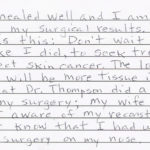 healed well and I am
my surgical results.
s this: Don't wait
ke I did, to seek tr
ect skin cancer. The lo
will be more tissue i
at Dr. Thompson did a
my surgery; my wife
aware of my reconst
know that I had u
surgery on my nose.